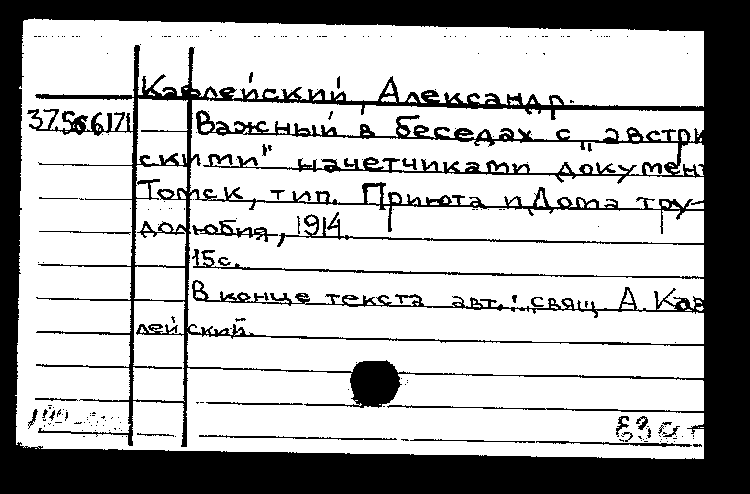 Кавлейский, Александр.
37.56.6171 Важный в беседах с „австри
скими" начетчиками докумен
Томск, тип. Приюта и Дома тру-
долюбия, 1914.
15с.
В конце текста авт.: свящ. А. Кав
лейский.